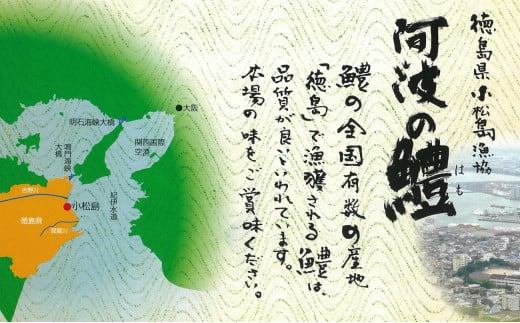 徳島県 小松島漁協
阿波の鱧
はも
鱧の全国有数の産地
「徳島」で漁獲される鱧は、
品質が良いといわれています。
本場の味をご賞味ください。
大阪
明石海峡大橋
関西国際
空港
鳴門海峡
大橋
紀伊水道
吉野川
小松島
徳島県
那賀川